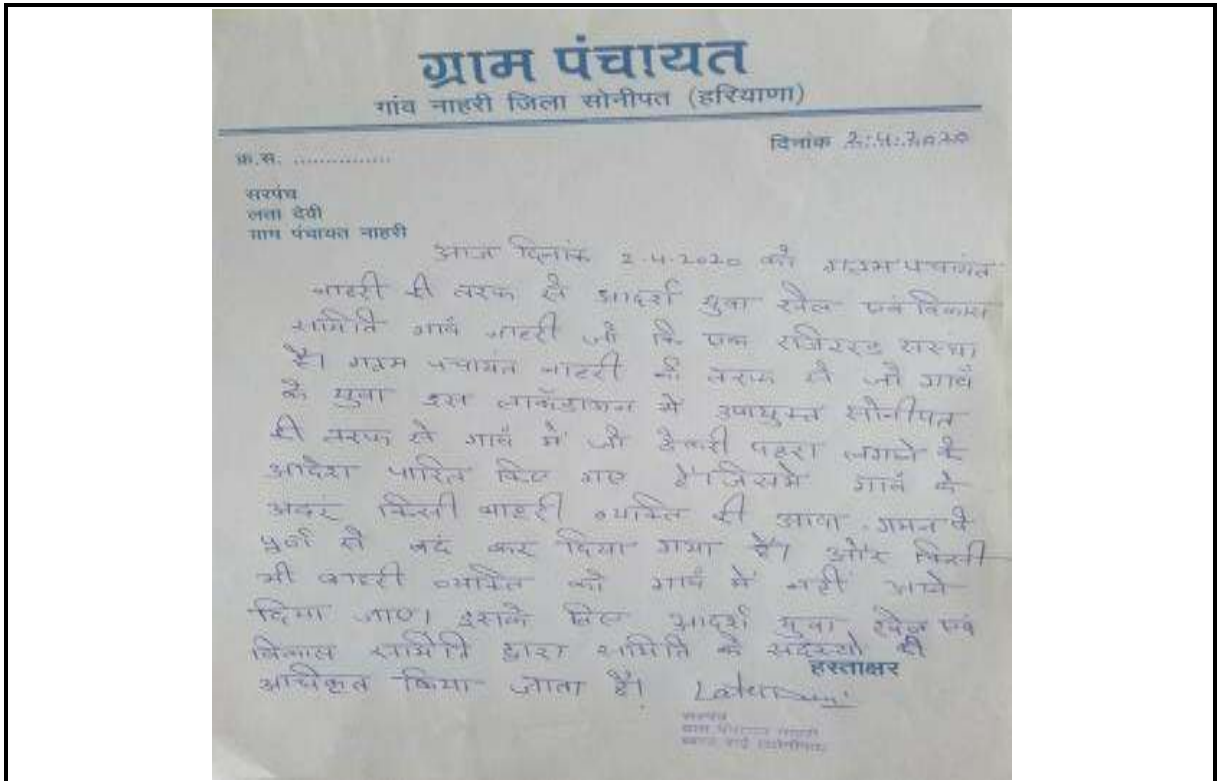 ग्राम पंचायत
गांव नाहरी जिला सोनीपत (हरियाणा)
क्र.स. ............... दिनांक 2.4.2020
सरपंच
लता देवी
ग्राम पंचायत नाहरी
आज दिनांक 2.4.2020 को ग्राम पचायंत
नाहरी की तरफ से आदर्श युवा खेल एवं विकास
समिति गावं नाहरी जो कि एक रजिस्टर्ड संस्था
है। ग्राम पचायंत नाहरी की तरफ से जो गावं
के युवा इस लाकॅडाऊन मे उपायुक्त सोनीपत
की तरफ से गावं में जो ठेकरी पहरा लगाने के
आदेश पारित किए गए है। जिसमे गावं के
अदंर किसी बाहरी व्यक्ति की आवा-गमन पे
पूर्ण से बदं कर दिया गया है। और किसी
भी बाहरी व्यक्ति को गावं में नहीं आने
दिया जाए। इसके लिए आदर्श युवा खेल एवं
विकास समिति द्वारा समिति के सदस्यो को
हस्ताक्षर
अधिकृत किया जाता है।
सरपंच
ग्राम पंचायत नाहरी